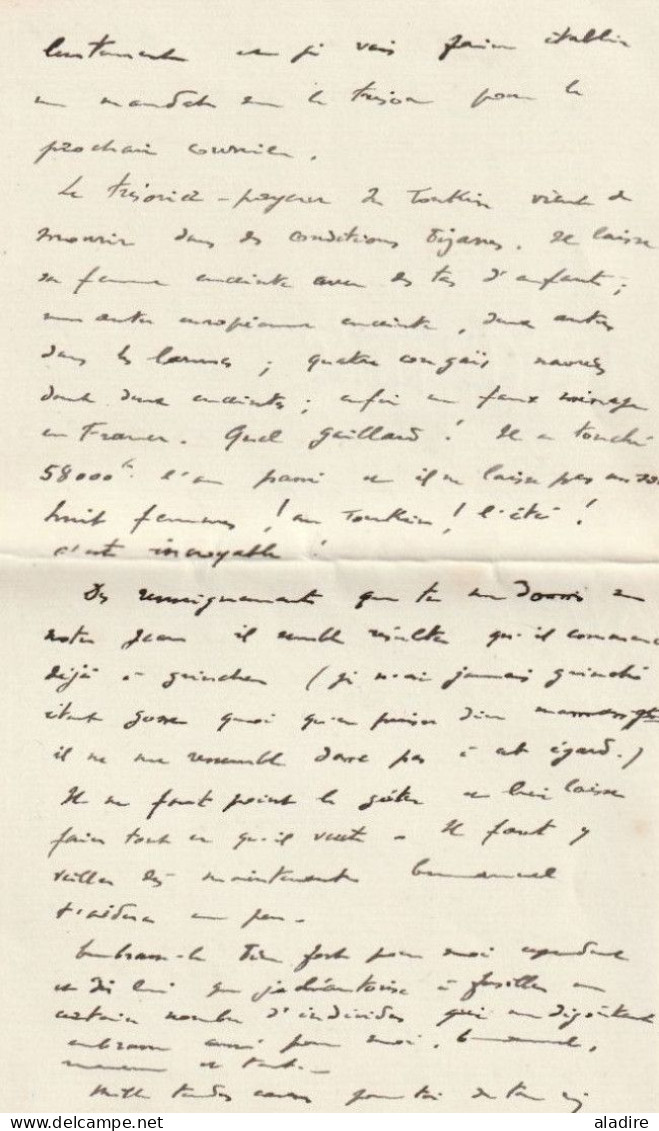 et je vais faire établir
un mandat sur le trésor pour le
prochain courrier.
Le trésorier-payeur du Tonkin vient de
mourir dans des conditions bizarres. Il laisse
sa femme enceinte avec des tas d'enfants ;
une autre européenne enceinte, deux autres
dans les larmes ; quatre congaïs navrées
dont deux enceintes ; enfin un faux ménage
en France. Quel gaillard ! Il a touché
58000 fr l'an passé et il ne laisse pas un sou
huit femmes ! au Tonkin ! l'été !
c'est incroyable !
Des renseignements que tu me donnes sur
notre Jean il semble résulter qu'il commence
déjà à grincher (je n'ai jamais grinché
étant gosse quoi qu'en puisse dire
il ne me ressemble donc pas à cet égard.)
Il ne faut point le gâter et lui laisser
faire tout ce qu'il veut. Il faut y
veiller dès maintenant
t'aidera un peu.
Embrasse-le bien fort pour moi cependant
et dis lui que à fusiller un
certain nombre d'individus qui me dégoûtent
embrasse aussi pour moi,
et tante.
Mille tendres pour toi de ton
aladire